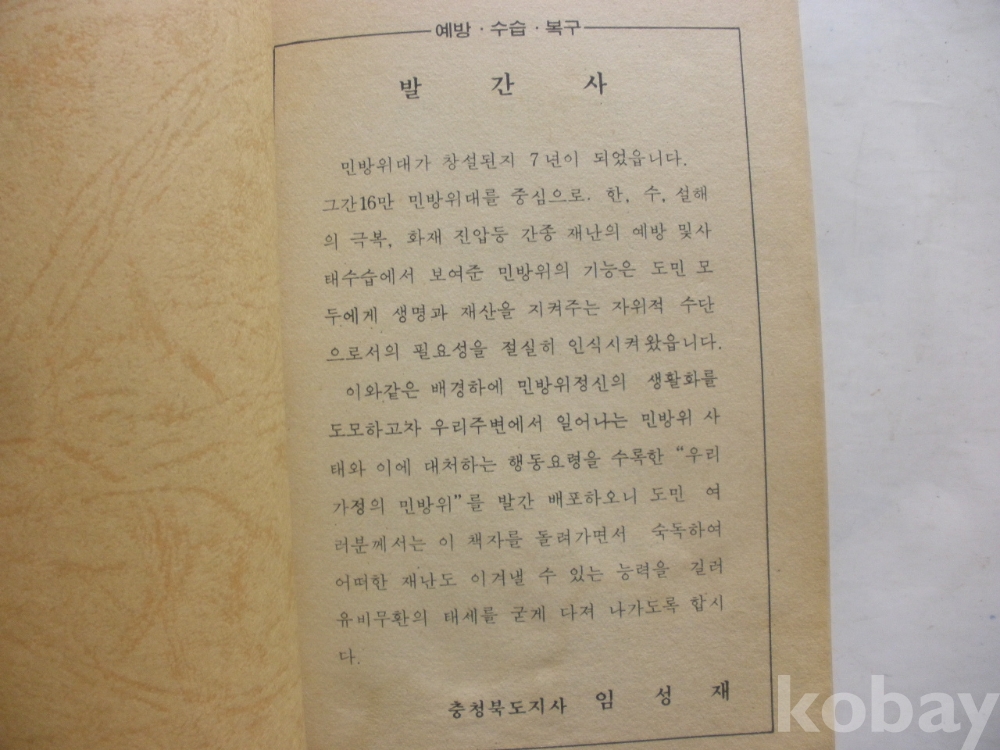 예방 · 수습 · 복구
발 간 사
민방위대가 창설된지 7년이 되었읍니다.
그간16만 민방위대를 중심으로. 한, 수, 설해
의 극복, 화재 진압등 간종 재난의 예방 및사
태수습에서 보여준 민방위의 기능은 도민 모
두에게 생명과 재산을 지켜주는 자위적 수단
으로서의 필요성을 절실히 인식시켜왔읍니다.
이와같은 배경하에 민방위정신의 생활화를
도모하고자 우리주변에서 일어나는 민방위 사
태와 이에 대처하는 행동요령을 수록한 “우리
가정의 민방위”를 발간 배포하오니 도민 여
러분께서는 이 책자를 돌려가면서 숙독하여
어떠한 재난도 이겨낼 수 있는 능력을 길러
유비무환의 태세를 굳게 다져 나가도록 합시
다.
충청북도지사 임 성 재
kobay